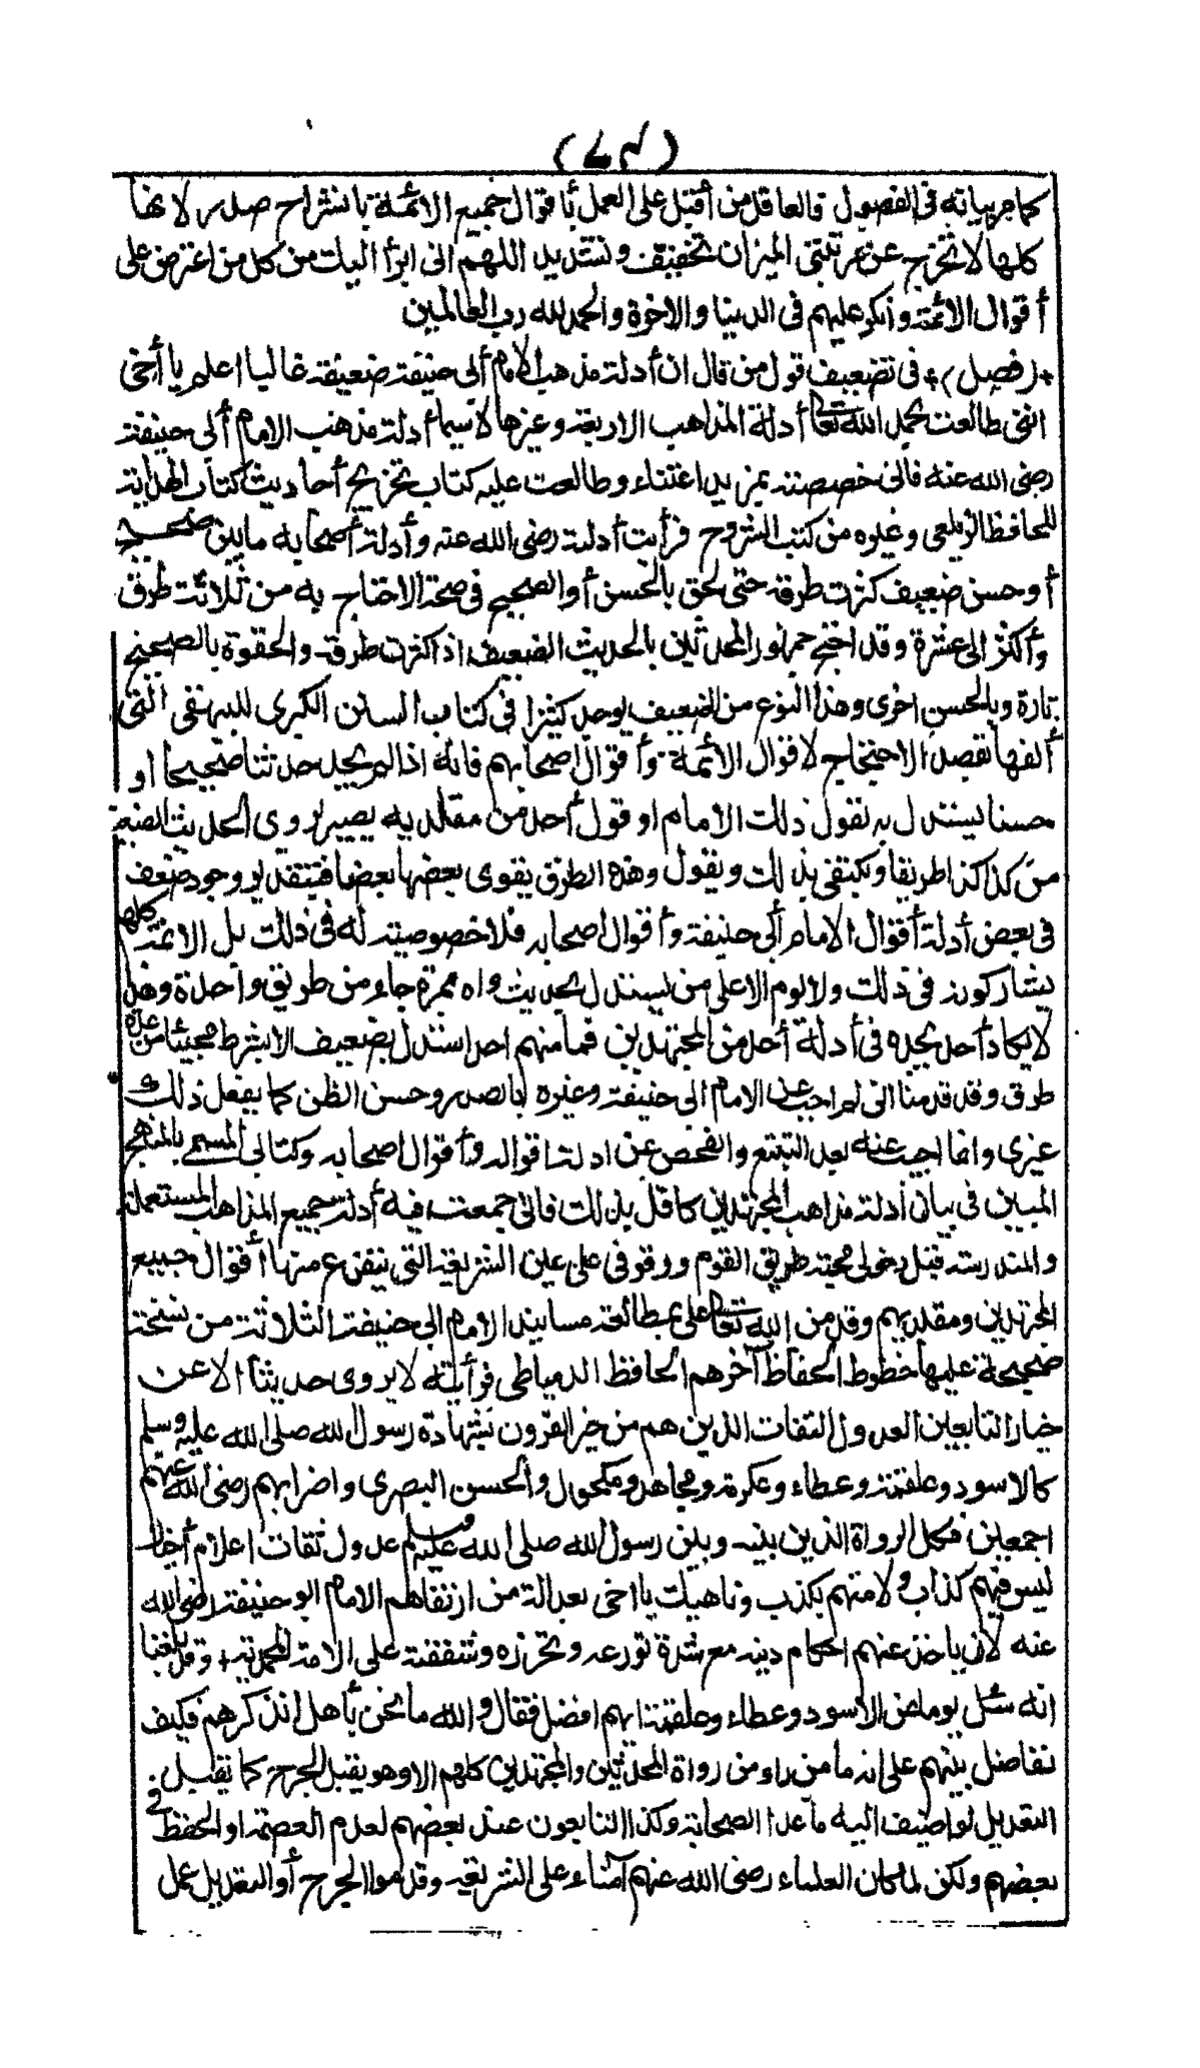 (٦٩)
كما مر بيانه فى الفصول فالعاقل من أقبل على العمل بأقوال جميع الائمة بانشراح صدر لانها
كلها لا تخرج عن مرتبتى الميزان تخفيف وتشديد اللهم انى ابرأ اليك من كل من اعترض على
أقوال الائمة وأنكر عليهم فى الدنيا والاخرة والحمد لله رب العالمين
*(فصل)* فى تضعيف قول من قال ان أدلة مذهب الامام أبى حنيفة ضعيفة غالبا اعلم يا أخى
اننى طالعت بحمد الله تعالى أدلة المذاهب الاربعة وغيرها لا سيما أدلة مذهب الامام أبى حنيفة
رضى الله عنه فانى خصصته بمزيد اعتناء وطالعت عليه كتاب تخريج أحاديث كتاب الهداية
للحافظ الزيلعى وغيره من كتب الشروح فرأيت أدلته رضى الله عنه وأدلة أصحابه ما بين صحيح
أو حسن ضعيف كثرت طرقه حتى لحق بالحسن أو الصحيح فى صحة الاحتجاج به من ثلاثة طرق
وأكثر الى عشرة وقد احتج جمهور المحدثين بالحديث الضعيف اذا كثرت طرقه والحقوه بالصحيح
تارة وبالحسن اخرى وهذا النوع من الضعيف يوجد كثيرا فى كتاب السنن الكبرى للبيهقى التى
ألفها بقصد الاحتجاج لاقوال الائمة وأقوال اصحابهم فانه اذا لم يجد حديثا صحيحا او
حسنا يستدل به لقول ذلك الامام او قول أحد من مقلديه يصير يروى الحديث الضعيف
من كذا كذا طريقا ويكتفى بذلك ويقول وهذه الطرق يقوى بعضها بعضا فبتقدير وجود ضعف
فى بعض أدلة أقوال الامام أبى حنيفة وأقوال اصحابه فلا خصوصية له فى ذلك بل الائمة كلها
يشاركونه فى ذلك ولا لوم الا على من يستدل بحديث واه بمرة جاء من طريق واحدة وهذا
لا يكاد أحد يجده فى أدلة أحد من المجتهدين فما منهم احد استدل بضعيف الا بشرط مجيئه من عدة
طرق وقد قدمنا انى لم اجب عن الامام ابى حنيفة وغيره بالصدر وحسن الظن كما يفعل ذلك
غيرى وانما اجبت عنه بعد التتبع والفحص عن ادلة اقواله وأقوال اصحابه وكتابى المسمى بالمنهج
المبين فى بيان أدلة مذاهب المجتهدين كافل بذلك فانى جمعت فيه أدلة جميع المذاهب المستعملة
والمندرسة قبل دخولى محبة طريق القوم ووقوفى على عين الشريعة التى يتفرع منها أقوال جميع
المجتهدين ومقلديهم وقد من الله تعالى على بمطالعة مسانيد الامام ابى حنيفة الثلاثة من نسخة
صحيحة عليها خطوط الحفاظ آخرهم الحافظ الدمياطى فرأيته لا يروى حديثا الا عن
خيار التابعين العدول الثقات الذين هم من خير القرون بشهادة رسول الله صلى الله عليه وسلم
كالاسود وعلقمة وعطاء وعكرمة ومجاهد ومكحول والحسن البصرى واضرابهم رضى الله عنهم
اجمعين فكل الرواة الذين بينه وبين رسول الله صلى الله عليه وسلم عدول ثقات اعلام أخيار
ليس فيهم كذاب ولا متهم بكذب وناهيك يا اخى بعدالة من ارتضاهم الامام ابو حنيفة رضى الله
عنه لان ياخذ عنهم احكام دينه مع شدة تورعه وتحرزه وشفقته على الامة المحمدية وقد بلغنا
انه سئل يوما عن الاسود وعطاء وعلقمة ايهم افضل فقال والله ما نحن بأهل ان نذكرهم فكيف
نفاضل بينهم على انه ما من راو من رواة المحدثين والمجتهدين كلهم الا وهو يقبل الجرح كما يقبل
التعديل لو اضيف اليه ما عدا الصحابة وكذا التابعون عند بعضهم لعدم العصمة او الحفظ فى
بعضهم ولكن لما كان العلماء رضى الله عنهم أمناء على الشريعة وقدموا الجرح أو التعديل عمل